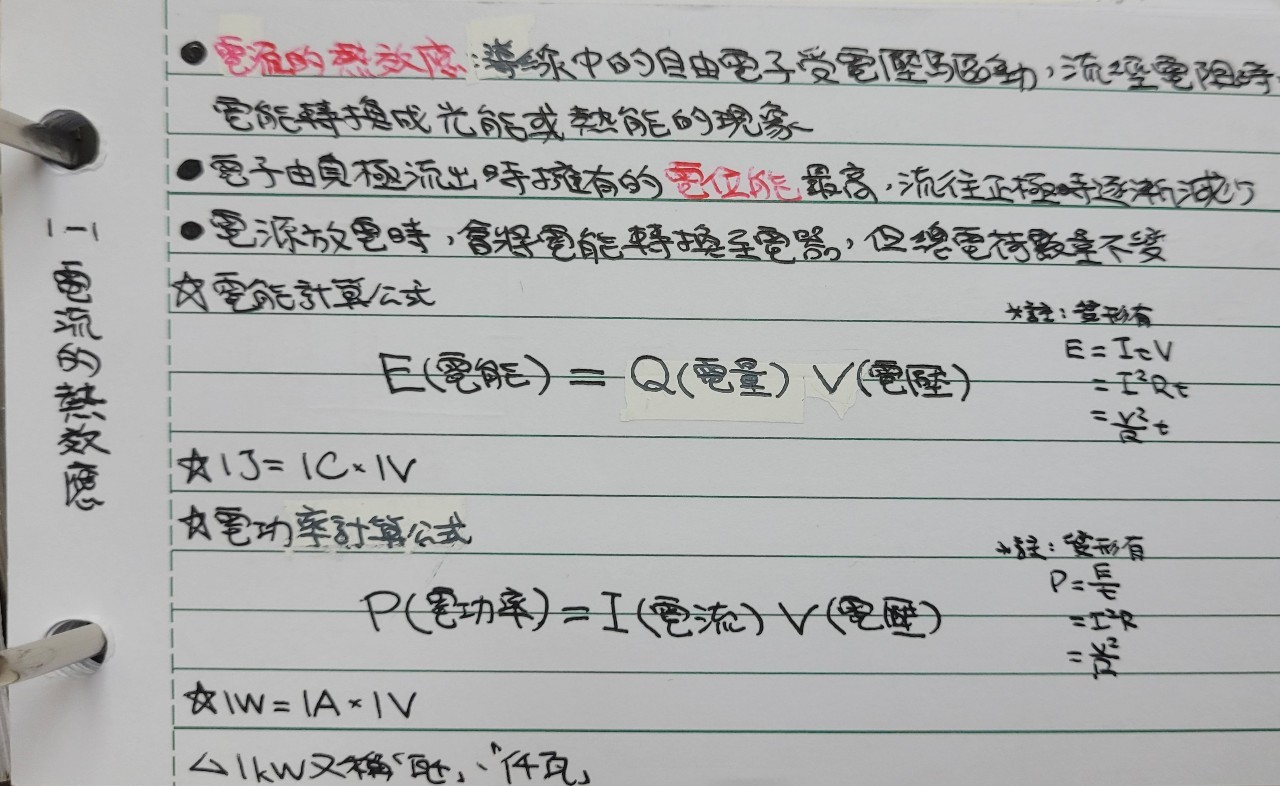 1-1 電流的熱效應
●電流的熱效應:導線中的自由電子受電壓驅動,流經電阻時,
電能轉換成光能或熱能的現象
●電子由負極流出時擁有的電位能最高,流往正極時逐漸減少
●電源放電時,會將電能轉換至電器,但總電荷數量不變
☆電能計算公式
*註:變形有
E(電能)=Q(電量)V(電壓)
E=ItV
=I²Rt
=V²/R t
☆1J=1C×1V
☆電功率計算公式
*註:變形有
P(電功率)=I(電流)V(電壓)
P=E/t
=I²R
=V²/R
☆1W=1A×1V
△1kW又稱「瓩」、「仟瓦」